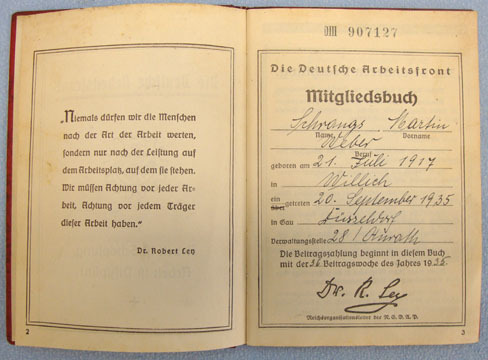 „Niemals dürfen wir die Menschen
nach der Art der Arbeit werten,
sondern nur nach der Leistung auf
dem Arbeitsplatz, auf dem sie stehen.
Wir müssen Achtung vor jeder Ar-
beit, Achtung vor jedem Träger
dieser Arbeit haben.“
Dr. Robert Ley
2
DIII 907127
Die Deutsche Arbeitsfront
Mitgliedsbuch
Schrangs Martin
Name Vorname
Weber
Beruf
geboren am 21. Juli 1917
in Willich
eingetreten 20. September 1935
über
in Gau Düsseldorf
Verwaltungsstelle 28 / Anrath
Die Beitragszahlung beginnt in diesem Buch
mit der 36 Beitragswoche des Jahres 1935.
Dr. R. Ley
Reichsorganisationsleiter der N.S.D.A.P.
3